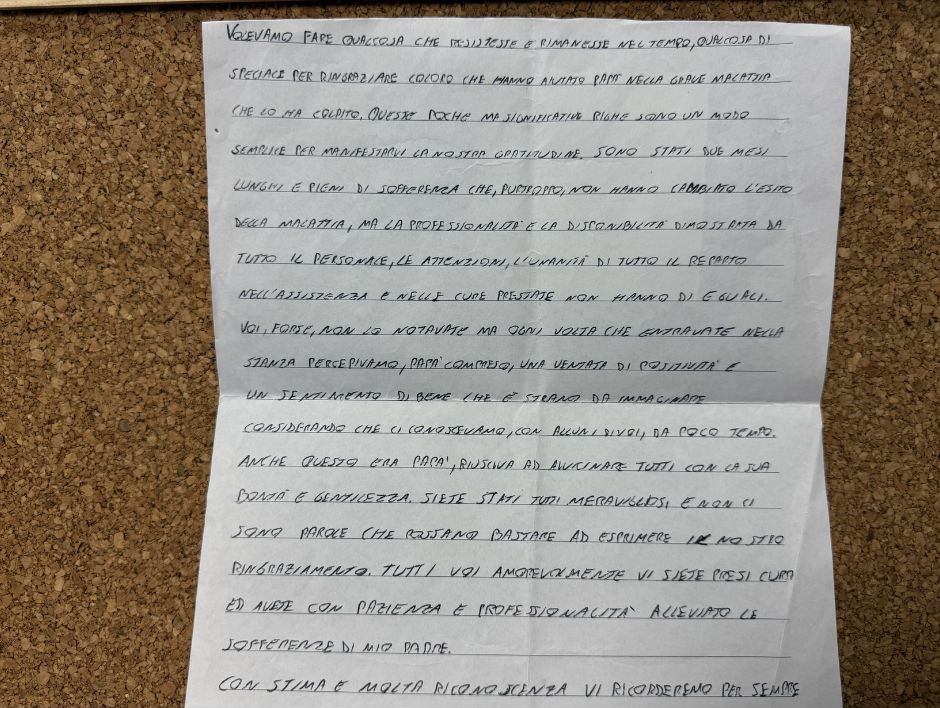 VOLEVAMO FARE QUALCOSA CHE RESISTESSE E RIMANESSE NEL TEMPO, QUALCOSA DI
SPECIALE PER RINGRAZIARE COLORO CHE HANNO AIUTATO PAPA' NELLA GRAVE MALATTIA
CHE LO HA COLPITO. QUESTE POCHE MA SIGNIFICATIVE RIGHE SONO UN MODO
SEMPLICE PER MANIFESTARVI LA NOSTRA GRATITUDINE. SONO STATI DUE MESI
LUNGHI E PIENI DI SOFFERENZA CHE, PURTROPPO, NON HANNO CAMBIATO L'ESITO
DELLA MALATTIA, MA LA PROFESSIONALITA' E LA DISPONIBILITA' DIMOSTRATA DA
TUTTO IL PERSONALE, LE ATTENZIONI, L'UMANITA' DI TUTTO IL REPARTO
NELL'ASSISTENZA E NELLE CURE PRESTATE NON HANNO DI EGUALI.
VOI, FORSE, NON LO NOTAVATE MA OGNI VOLTA CHE ENTRAVATE NELLA
STANZA PERCEPIVAMO, PAPA' COMPRESO, UNA VENTATA DI POSITIVITA' E
UN SENTIMENTO DI BENE CHE E' STRANO DA IMMAGINARE
CONSIDERANDO CHE CI CONOSCEVAMO, CON ALCUNI DI VOI, DA POCO TEMPO.
ANCHE QUESTO ERA PAPA', RIUSCIVA AD AVVICINARE TUTTI CON LA SUA
BONTA' E GENTILEZZA. SIETE STATI TUTTI MERAVIGLIOSI E NON CI
SONO PAROLE CHE POSSANO BASTARE AD ESPRIMERE IL NOSTRO
RINGRAZIAMENTO. TUTTI VOI AMOREVOLMENTE VI SIETE PRESI CURA
ED AVETE CON PAZIENZA E PROFESSIONALITA' ALLEVIATO LE
SOFFERENZE DI MIO PADRE.
CON STIMA E MOLTA RICONOSCENZA VI RICORDEREMO PER SEMPRE